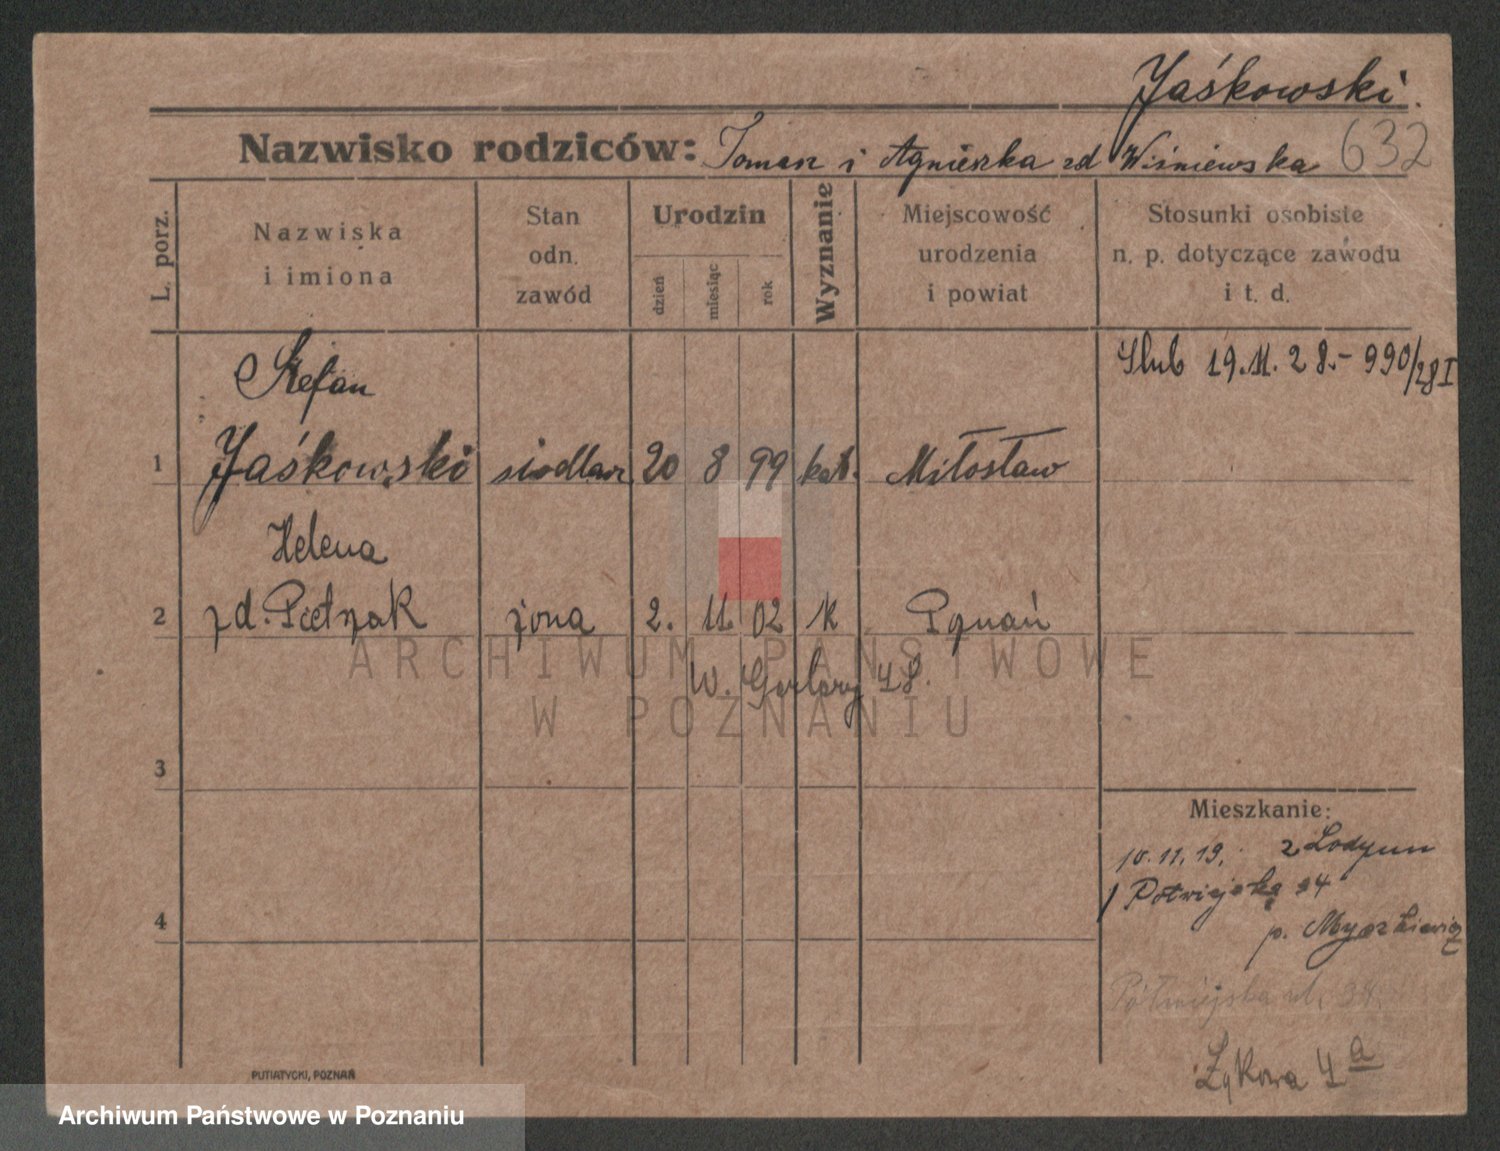 Jaśkowski.
Nazwisko rodziców: Tomasz i Agnieszka zd Wiśniewska 632
L. porz.
Nazwiska
i imiona
Stan
odn.
zawód
Urodzin
dzień
miesiąc
rok
Wyznanie
Miejscowość
urodzenia
i powiat
Stosunki osobiste
n. p. dotyczące zawodu
i t. d.
Ślub 19.11.28.- 990/28 I
Stefan
1 Jaśkowski siodlarz 20 8 99 kat. Miłosław
Helena
2 zd. Pietrzak żona 2. 11. 02 K Poznań
W. Garbary 48.
ARCHIWUM PAŃSTWOWE
W POZNANIU
3
Mieszkanie:
10.11.19. z
Półwiejska 34
4
p. Myszkiewicz
Półwiejska ul. 34.
Łąkowa 4a
PUTIATYCKI, POZNAŃ
Archiwum Państwowe w Poznaniu